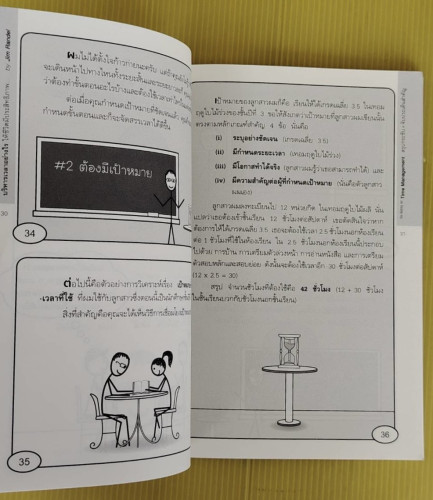 ผมไม่ได้ตั้งใจก้าวก่ายนะครับ แต่ถ้าคุณไม่
จะเดินหน้าไปทางไหนทั้งระยะสั้นและระยะยาวแล้ว
ว่าต้องทำขั้นตอนอะไรบ้างและต้องใช้เวลาเท่าไร
ต่อเมื่อคุณกำหนดเป้าหมายชัดเจนแล้ว
กำหนดขั้นตอนและก็จะจัดสรรเวลาได้ดีขึ้น
#2 ต้องมีเป้าหมาย
34
ต่อไปนี้คือตัวอย่างการวิเคราะห์เรื่อง
-เวลาที่ใช้ ที่ผมใช้กับลูกสาวซึ่งตอนนี้เป็นนักศึกษา
สิ่งที่สำคัญคือคุณจะได้เห็นวิธีการเชื่อมโยง
35
บริหารเวลาอย่างไร ให้ชีวิตมีประสิทธิภาพ by Jim Rander
30
เป้าหมายของลูกสาวผมก็คือ เรียนให้ได้เกรดเฉลี่ย 3.5 ในเทอม
ฤดูใบไม้ร่วงของชั้นปีที่ 3 ขอให้สังเกตว่าเป้าหมายที่ลูกสาวผมเขียนนั้น
ตรงตามหลักเกณฑ์สำคัญ 4 ข้อ นั่นคือ
(i) ระบุอย่างชัดเจน (เกรดเฉลี่ย 3.5)
(ii) มีกำหนดระยะเวลา (เทอมฤดูใบไม้ร่วง)
(iii) มีโอกาสทำได้จริง (ลูกสาวผมรู้ว่าเธอสามารถทำได้) และ
(iv) มีความสำคัญต่อผู้ที่กำหนดเป้าหมาย (นั่นคือตัวลูกสาว
ผมเอง)
ลูกสาวผมลงทะเบียนไป 12 หน่วยกิต ในเทอมฤดูใบไม้ผลิ นั่น
แปลว่าเธอต้องเข้าชั้นเรียน 12 ชั่วโมงต่อสัปดาห์ เธอคิดเสมอว่าหาก
ต้องการให้ได้เกรดเฉลี่ย 3.5 เธอจะต้องใช้เวลา 2.5 ชั่วโมงนอกห้องเรียน
ต่อ 1 ชั่วโมงที่ใช้ในห้องเรียน ใน 2.5 ชั่วโมงนอกห้องเรียนนี้ประกอบ
ไปด้วย การบ้าน การเตรียมตัวล่วงหน้า การอ่านหนังสือ และการเตรียม
ตัวสอบหลักและสอบย่อย ดังนั้นจะต้องใช้เวลาอีก 30 ชั่วโมงต่อสัปดาห์
(12 x 2.5 = 30)
สรุป จำนวนชั่วโมงที่ต้องใช้คือ 42 ชั่วโมง (12 + 30 ชั่วโมง
ในชั้นเรียนบวกกับชั่วโมงนอกชั้นเรียน)
36